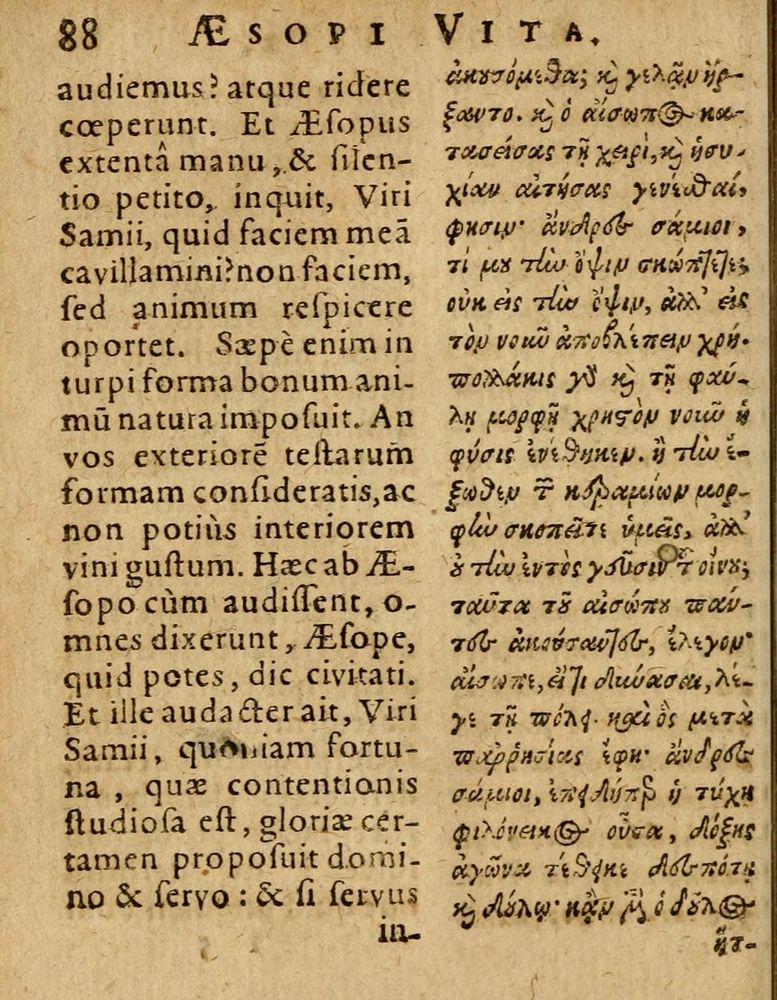 88 ÆSOPI VITA.
audiemus? atque ridere
cœperunt. Et Æſopus
extentâ manu, & ſilen-
tio petito, inquit, Viri
Samii, quid faciem meā
cavillamini? non faciem,
ſed animum reſpicere
oportet. Sæpè enim in
turpi forma bonum ani-
mū natura impoſuit. An
vos exteriorē teſtarum
formam conſideratis, ac
non potiùs interiorem
vini guſtum. Hæc ab Æ-
ſopo cùm audiſſent, o-
mnes dixerunt, Æſope,
quid potes, dic civitati.
Et ille audacter ait, Viri
Samii, quoniam fortu-
na, quæ contentionis
ſtudioſa eſt, gloriæ cer-
tamen propoſuit domi-
no & ſervo: & ſi ſervus
in-
ἀκουσόμεθα; καὶ γελᾷν ἤρ-
ξαντο. καὶ ὁ αἴσωπος κα-
τασείσας τῇ χειρὶ, καὶ ἡσυ-
χίαν αἰτήσας γενέσθαι,
φησιν· ἄνδρες σάμιοι,
τί μου τὴν ὄψιν σκώπτετε;
οὐκ εἰς τὴν ὄψιν, ἀλλ' εἰς
τὸν νοῦν ἀποβλέπειν χρή.
πολλάκις γὰρ καὶ τῇ φαύ-
λῃ μορφῇ χρηστὸν νοῦν ἡ
φύσις ἐνέθηκεν. ἢ τὴν ἔ-
ξωθεν τῶν κεραμίων μορ-
φὴν σκοπεῖτε ὑμεῖς, ἀλλ'
οὐ τὴν ἐντὸς γεῦσιν τοῦ οἴνου;
ταῦτα τοῦ αἰσώπου πάν-
τες ἀκούσαντες, ἔλεγον·
αἴσωπε, εἴ τι δύνασαι, λέ-
γε τῇ πόλει. καὶ ὃς μετὰ
παῤῥησίας ἔφη· ἄνδρες
σάμιοι, ἐπειδήπερ ἡ τύχη
φιλόνεικος οὖσα, δόξης
ἀγῶνα τέθεικε δεσπότῃ
καὶ δούλῳ· κἂν μὲν ὁ δοῦλος
ἥτ-